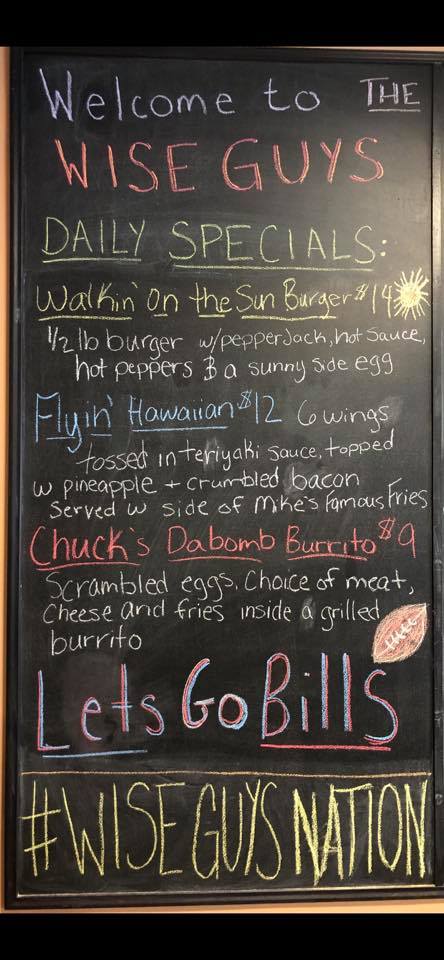 Welcome to THE
WISE GUYS
DAILY SPECIALS:
Walkin' On the Sun Burger $14
1/2 lb burger w/pepperJack, hot sauce,
hot peppers & a sunny side egg
Flyin' Hawaiian $12 6 wings
tossed in teriyaki sauce, topped
w pineapple + crumbled bacon
Served w side of Mike's Famous Fries
Chuck's Dabomb Burrito $9
Scrambled eggs, Choice of meat,
Cheese and fries inside a grilled
burrito
Lets Go Bills
#WISE GUYS NATION